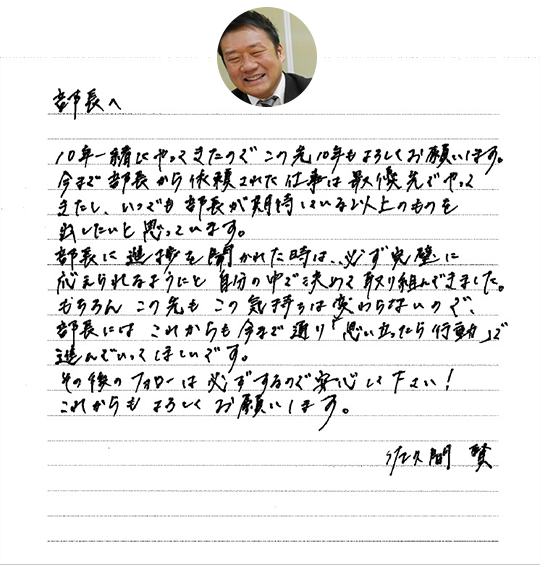 部長へ
10年一緒にやってきたのでこの先10年もよろしくお願いします。
今まで部長から依頼された仕事は最優先でやって
きたし、いつでも部長が期待している以上のものを
出したいと思っています。
部長に進捗を聞かれた時は、必ず完璧に
応えられるようにと自分の中で決めて取り組んできました。
もちろんこの先もこの気持ちは変わらないので、
部長にはこれからも今まで通り「思い立ったら行動」で
進んでいってほしいです。
その後のフォローは必ずするので安心して下さい！
これからもよろしくお願いします。
佐久間 賢